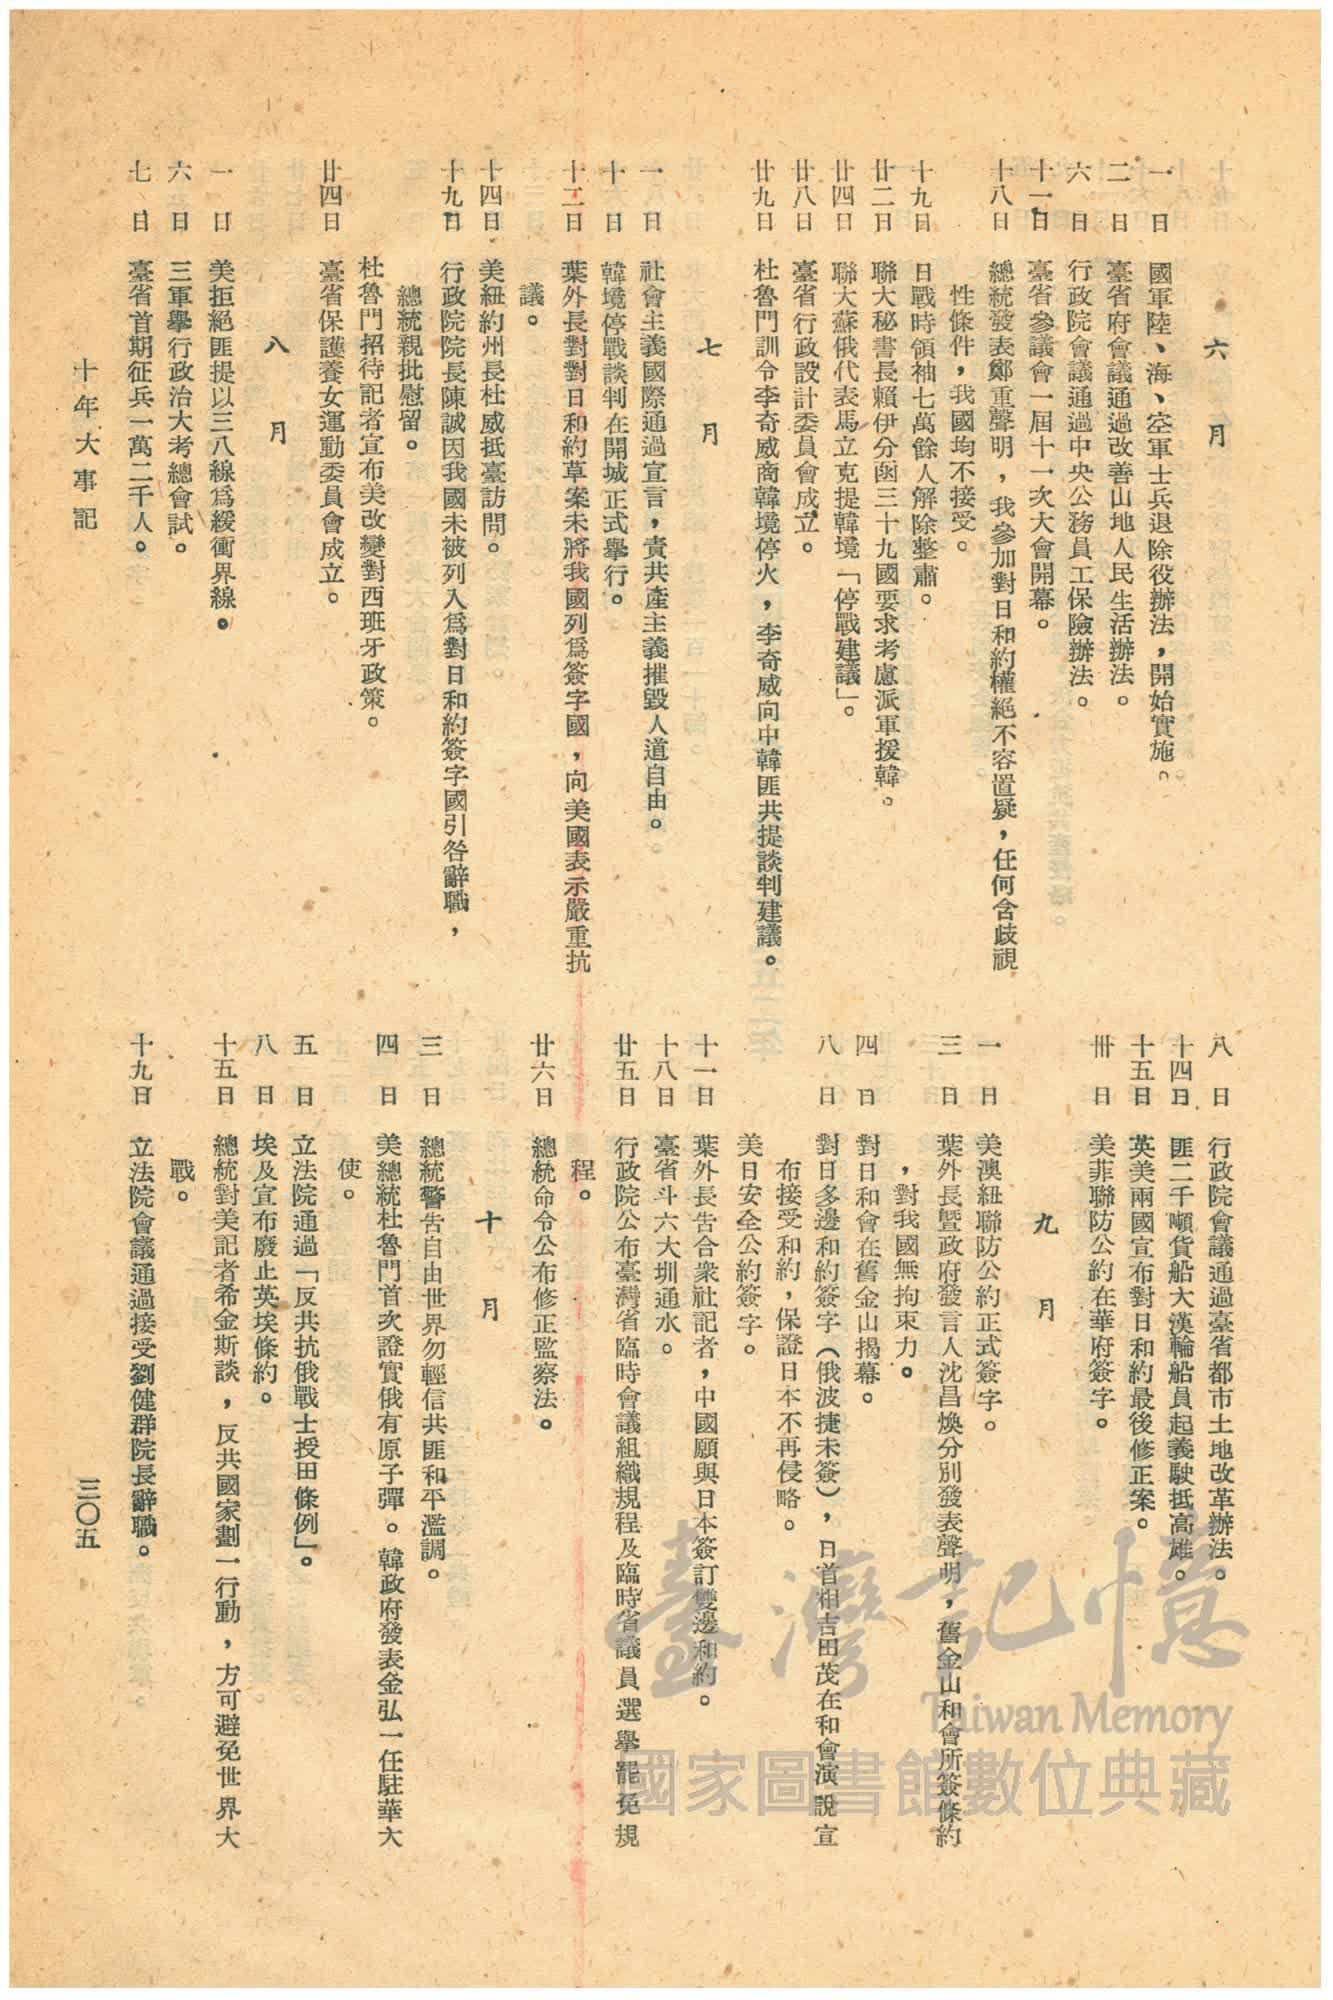 六月
一日　國軍陸、海、空軍士兵退除役辦法，開始實施。
二日　臺省府會議通過改善山地人民生活辦法。
六日　行政院會議通過中央公務員工保險辦法。
十一日　臺省參議會一屆十一次大會開幕。
十八日　總統發表鄭重聲明，我參加對日和約權絕不容置疑，任何含歧視
性條件，我國均不接受。
十九日　日戰時領袖七萬餘人解除整肅。
廿二日　聯大秘書長賴伊分函三十九國要求考慮派軍援韓。
廿四日　聯大蘇俄代表馬立克提韓境「停戰建議」。
廿八日　臺省行政設計委員會成立。
廿九日　杜魯門訓令李奇威商韓境停火，李奇威向中韓匪共提談判建議。
七月
一日　社會主義國際通過宣言，責共產主義摧毀人道自由。
十日　韓境停戰談判在開城正式舉行。
十二日　葉外長對對日和約草案未將我國列爲簽字國，向美國表示嚴重抗
議。
十四日　美紐約州長杜威抵臺訪問。
十九日　行政院院長陳誠因我國未被列入爲對日和約簽字國引咎辭職，
總統親批慰留。
杜魯門招待記者宣布美改變對西班牙政策。
廿四日　臺省保護養女運動委員會成立。
八月
一日　美拒絕匪提以三八線爲緩衝界線。
六日　三軍舉行政治大考總會試。
七日　臺省首期征兵一萬二千人。
十年大事記
八日　行政院會議通過臺省都市土地改革辦法。
十四日　匪二千噸貨船大漢輪船員起義駛抵高雄。
十五日　英美兩國宣布對日和約最後修正案。
卅日　美菲聯防公約在華府簽字。
九月
一日　美澳紐聯防公約正式簽字。
三日　葉外長暨政府發言人沈昌煥分別發表聲明，舊金山和會所簽條約
，對我國無拘束力。
四日　對日和會在舊金山揭幕。
八日　對日多邊和約簽字（俄波捷未簽），日首相吉田茂在和會演說宣
布接受和約，保證日本不再侵略。
美日安全公約簽字。
十一日　葉外長告合衆社記者，中國願與日本簽訂雙邊和約。
十八日　臺省斗六大圳通水。
廿五日　行政院公布臺灣省臨時會議組織規程及臨時省議員選舉罷免規
程。
廿六日　總統命令公布修正監察法。
十月
三日　總統警告自由世界勿輕信共匪和平濫調。
四日　美總統杜魯門首次證實俄有原子彈。韓政府發表金弘一任駐華大
使。
五日　立法院通過「反共抗俄戰士授田條例」。
八日　埃及宣布廢止英埃條約。
十五日　總統對美記者希金斯談，反共國家劃一行動，方可避免世界大
戰。
十九日　立法院會議通過接受劉健群院長辭職。
三〇五
臺灣記憶
Taiwan Memory
國家圖書館數位典藏